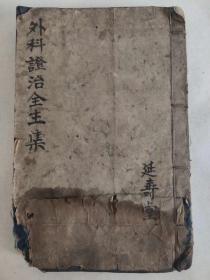 外科證治全生集
延壽堂